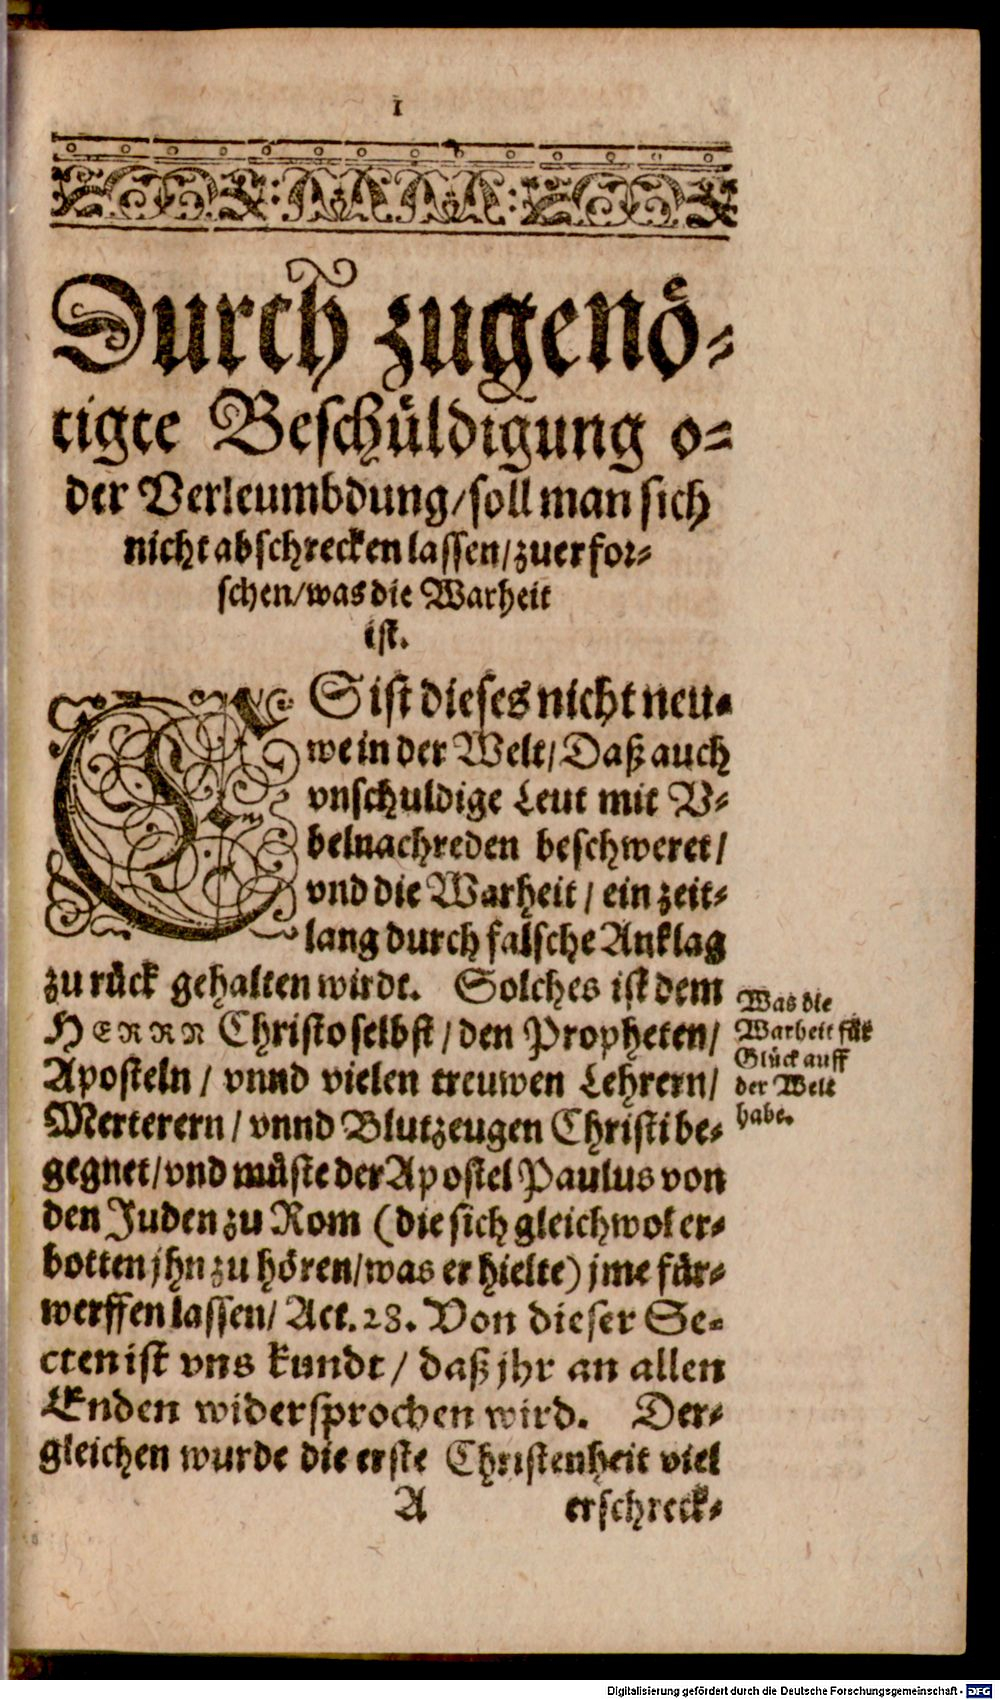 1
Durch zugenö-
tigte Beschüldigung o-
der Verleumbdung/soll man sich
nicht abschrecken lassen/zuerfor-
schen/was die Warheit
ist.
ES ist dieses nicht neu-
we in der Welt/Daß auch
vnschuldige Leut mit V-
belnachreden beschweret/
vnd die Warheit/ein zeit-
lang durch falsche Anklag
zu rück gehalten wirdt. Solches ist dem
HERRN Christo selbst/den Propheten/
Aposteln/vnnd vielen treuwen Lehrern/
Merterern/vnnd Blutzeugen Christi be-
gegnet/vnd müste der Apostel Paulus von
den Juden zu Rom (die sich gleichwol er-
botten jhn zu hören/was er hielte) jme für-
werffen lassen/Act. 28. Von dieser Se-
cten ist vns kundt/daß jhr an allen
Enden widersprochen wird. Der-
gleichen wurde die erste Christenheit viel
A erschreck-
Was die
Warheit für
Glück auff
der Welt
habe.
Digitalisierung gefördert durch die Deutsche Forschungsgemeinschaft - DFG